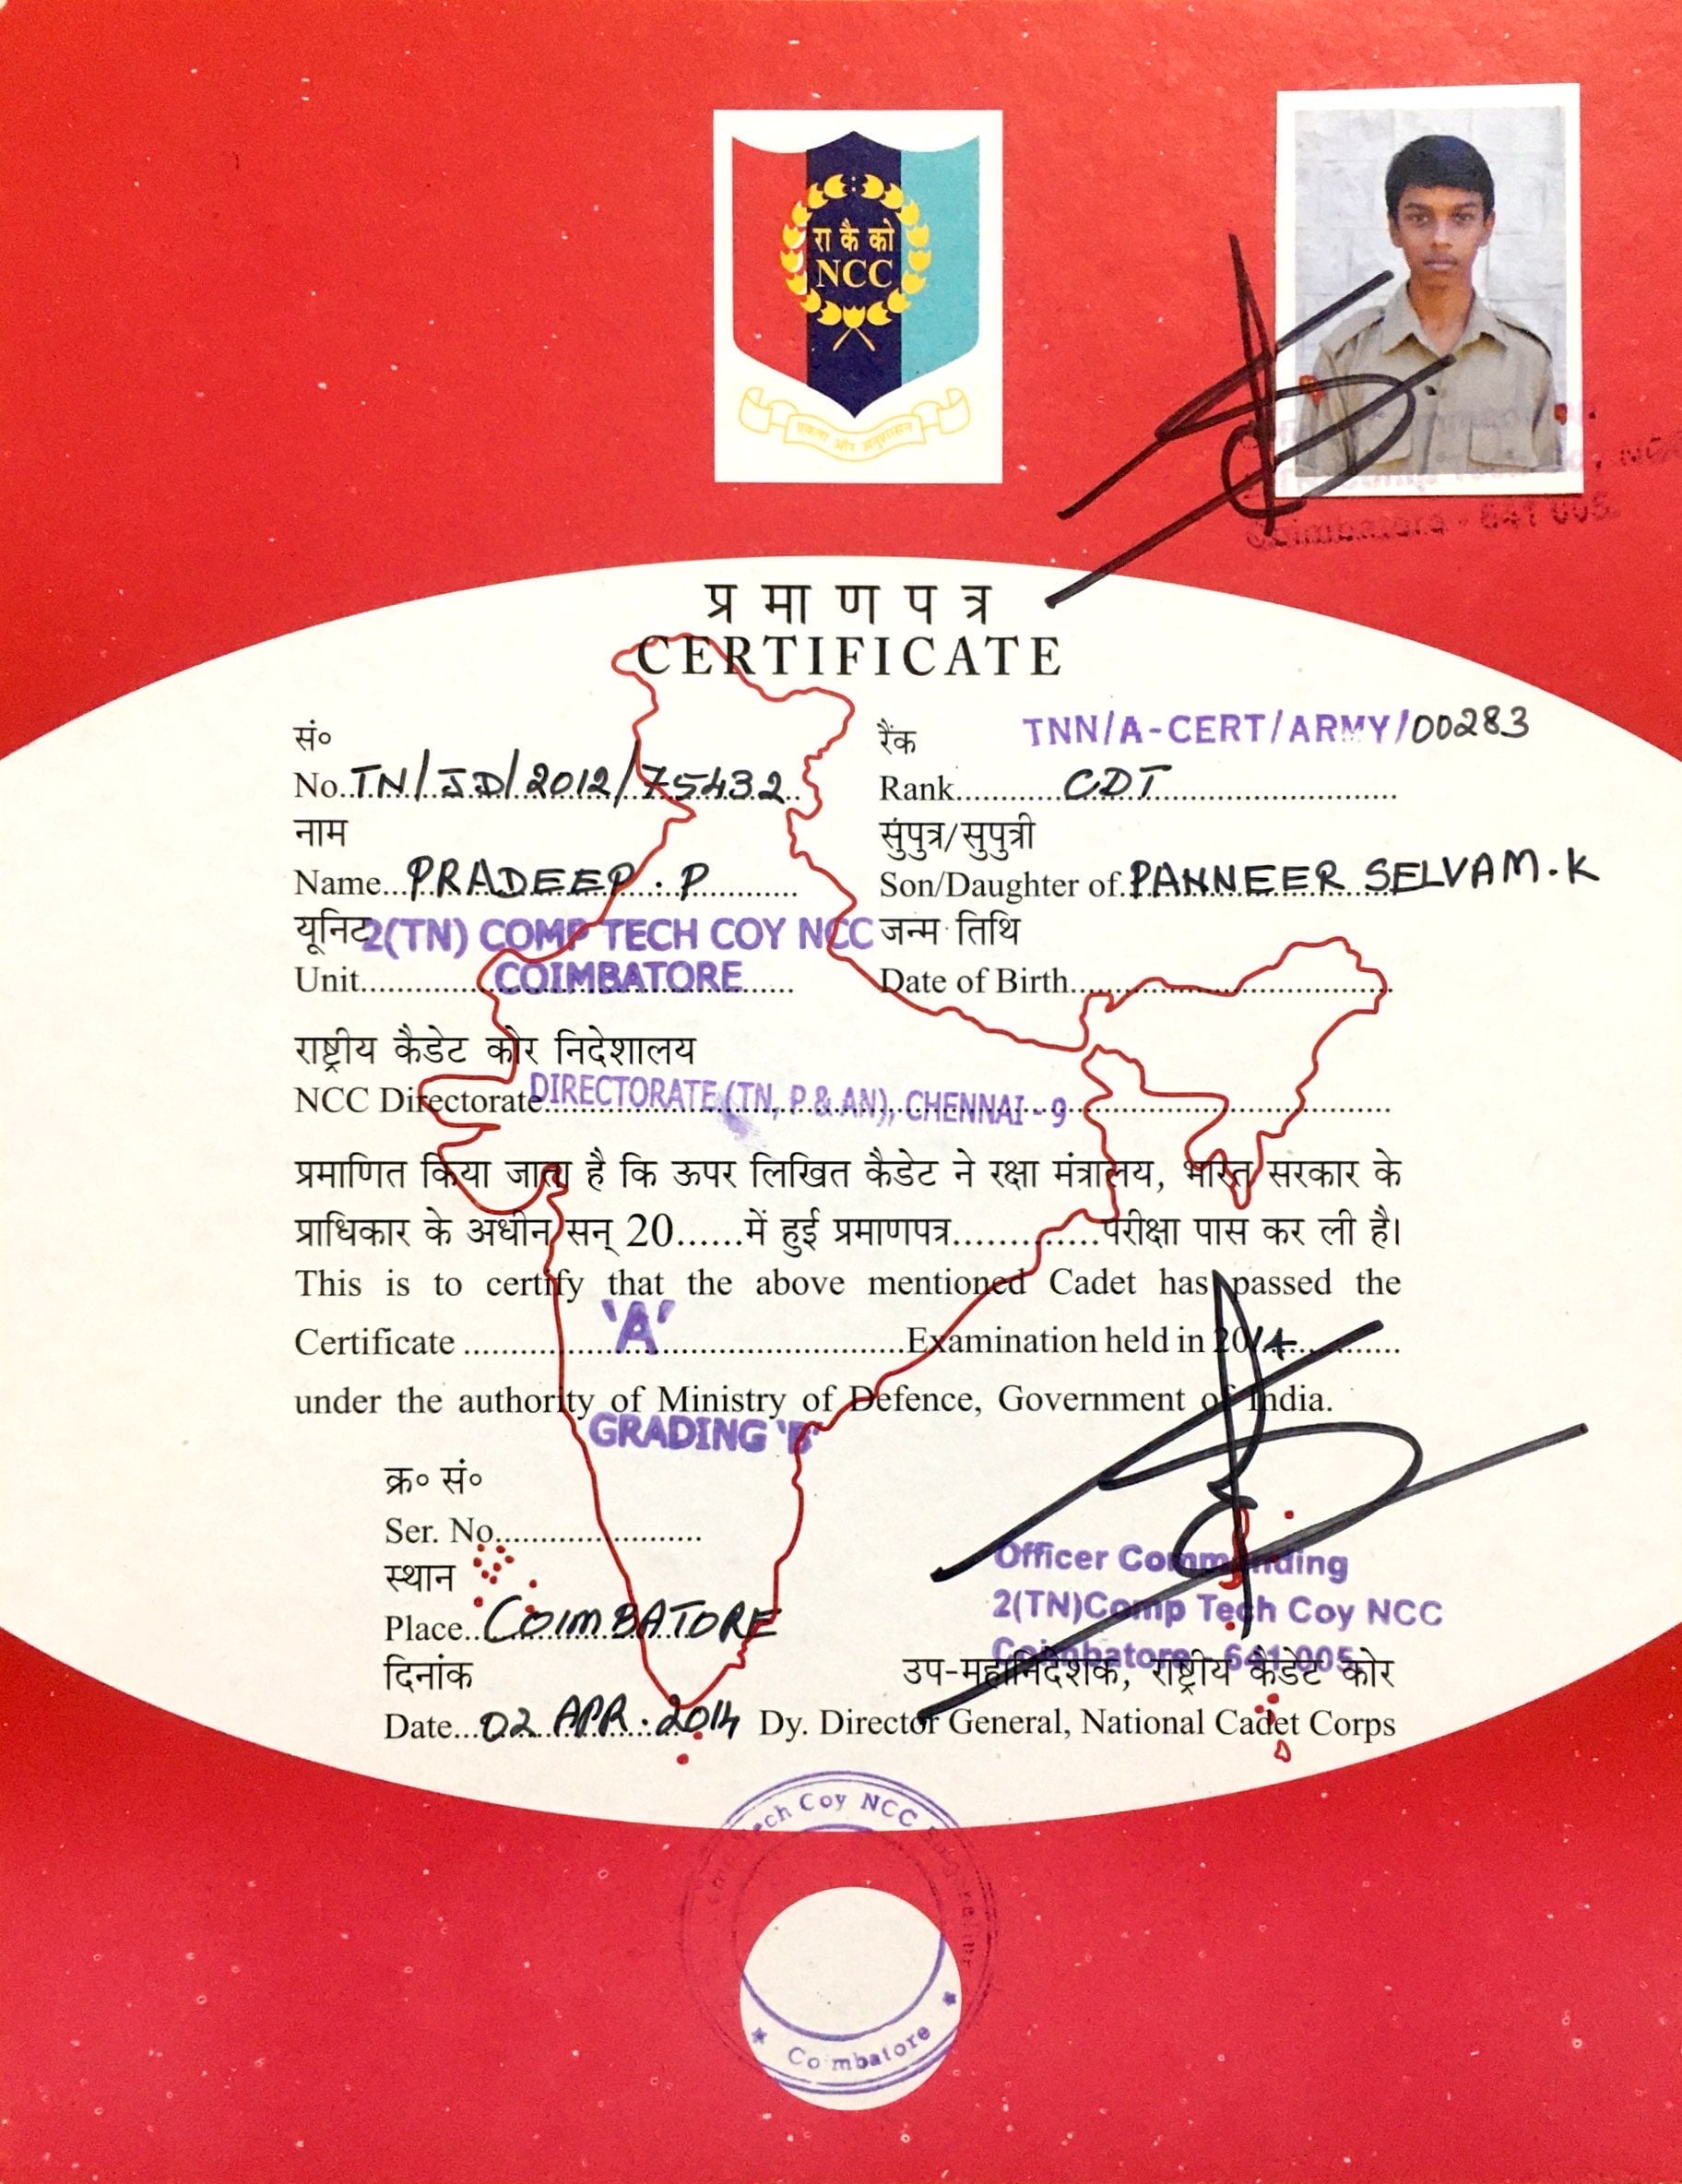 रा कै को
NCC
एकता और अनुशासन
Coimbatore - 641 005.
प्रमाणपत्र
CERTIFICATE
सं॰
रैंक TNN/A-CERT/ARMY/00283
No. TN/JD/2012/75432
Rank CDT
नाम
सुंपुत्र/सुपुत्री
Name PRADEEP . P
Son/Daughter of PANNEER SELVAM.K
यूनिट 2(TN) COMP TECH COY NCC
जन्म तिथि
Unit COIMBATORE
Date of Birth
राष्ट्रीय कैडेट कोर निदेशालय
NCC Directorate DIRECTORATE (TN, P & AN), CHENNAI - 9
प्रमाणित किया जाता है कि ऊपर लिखित कैडेट ने रक्षा मंत्रालय, भारत सरकार के
प्राधिकार के अधीन सन् 20......में हुई प्रमाणपत्र.............परीक्षा पास कर ली है।
This is to certify that the above mentioned Cadet has passed the
Certificate 'A' Examination held in 2014
under the authority of Ministry of Defence, Government of India.
GRADING 'B'
क्र॰ सं॰
Ser. No.
Officer Commanding
स्थान
2(TN)Comp Tech Coy NCC
Place COIMBATORE
Coimbatore - 641 005
दिनांक
उप-महानिदेशक, राष्ट्रीय कैडेट कोर
Date 02 APR. 2014
Dy. Director General, National Cadet Corps
Tech Coy NCC
Coimbatore